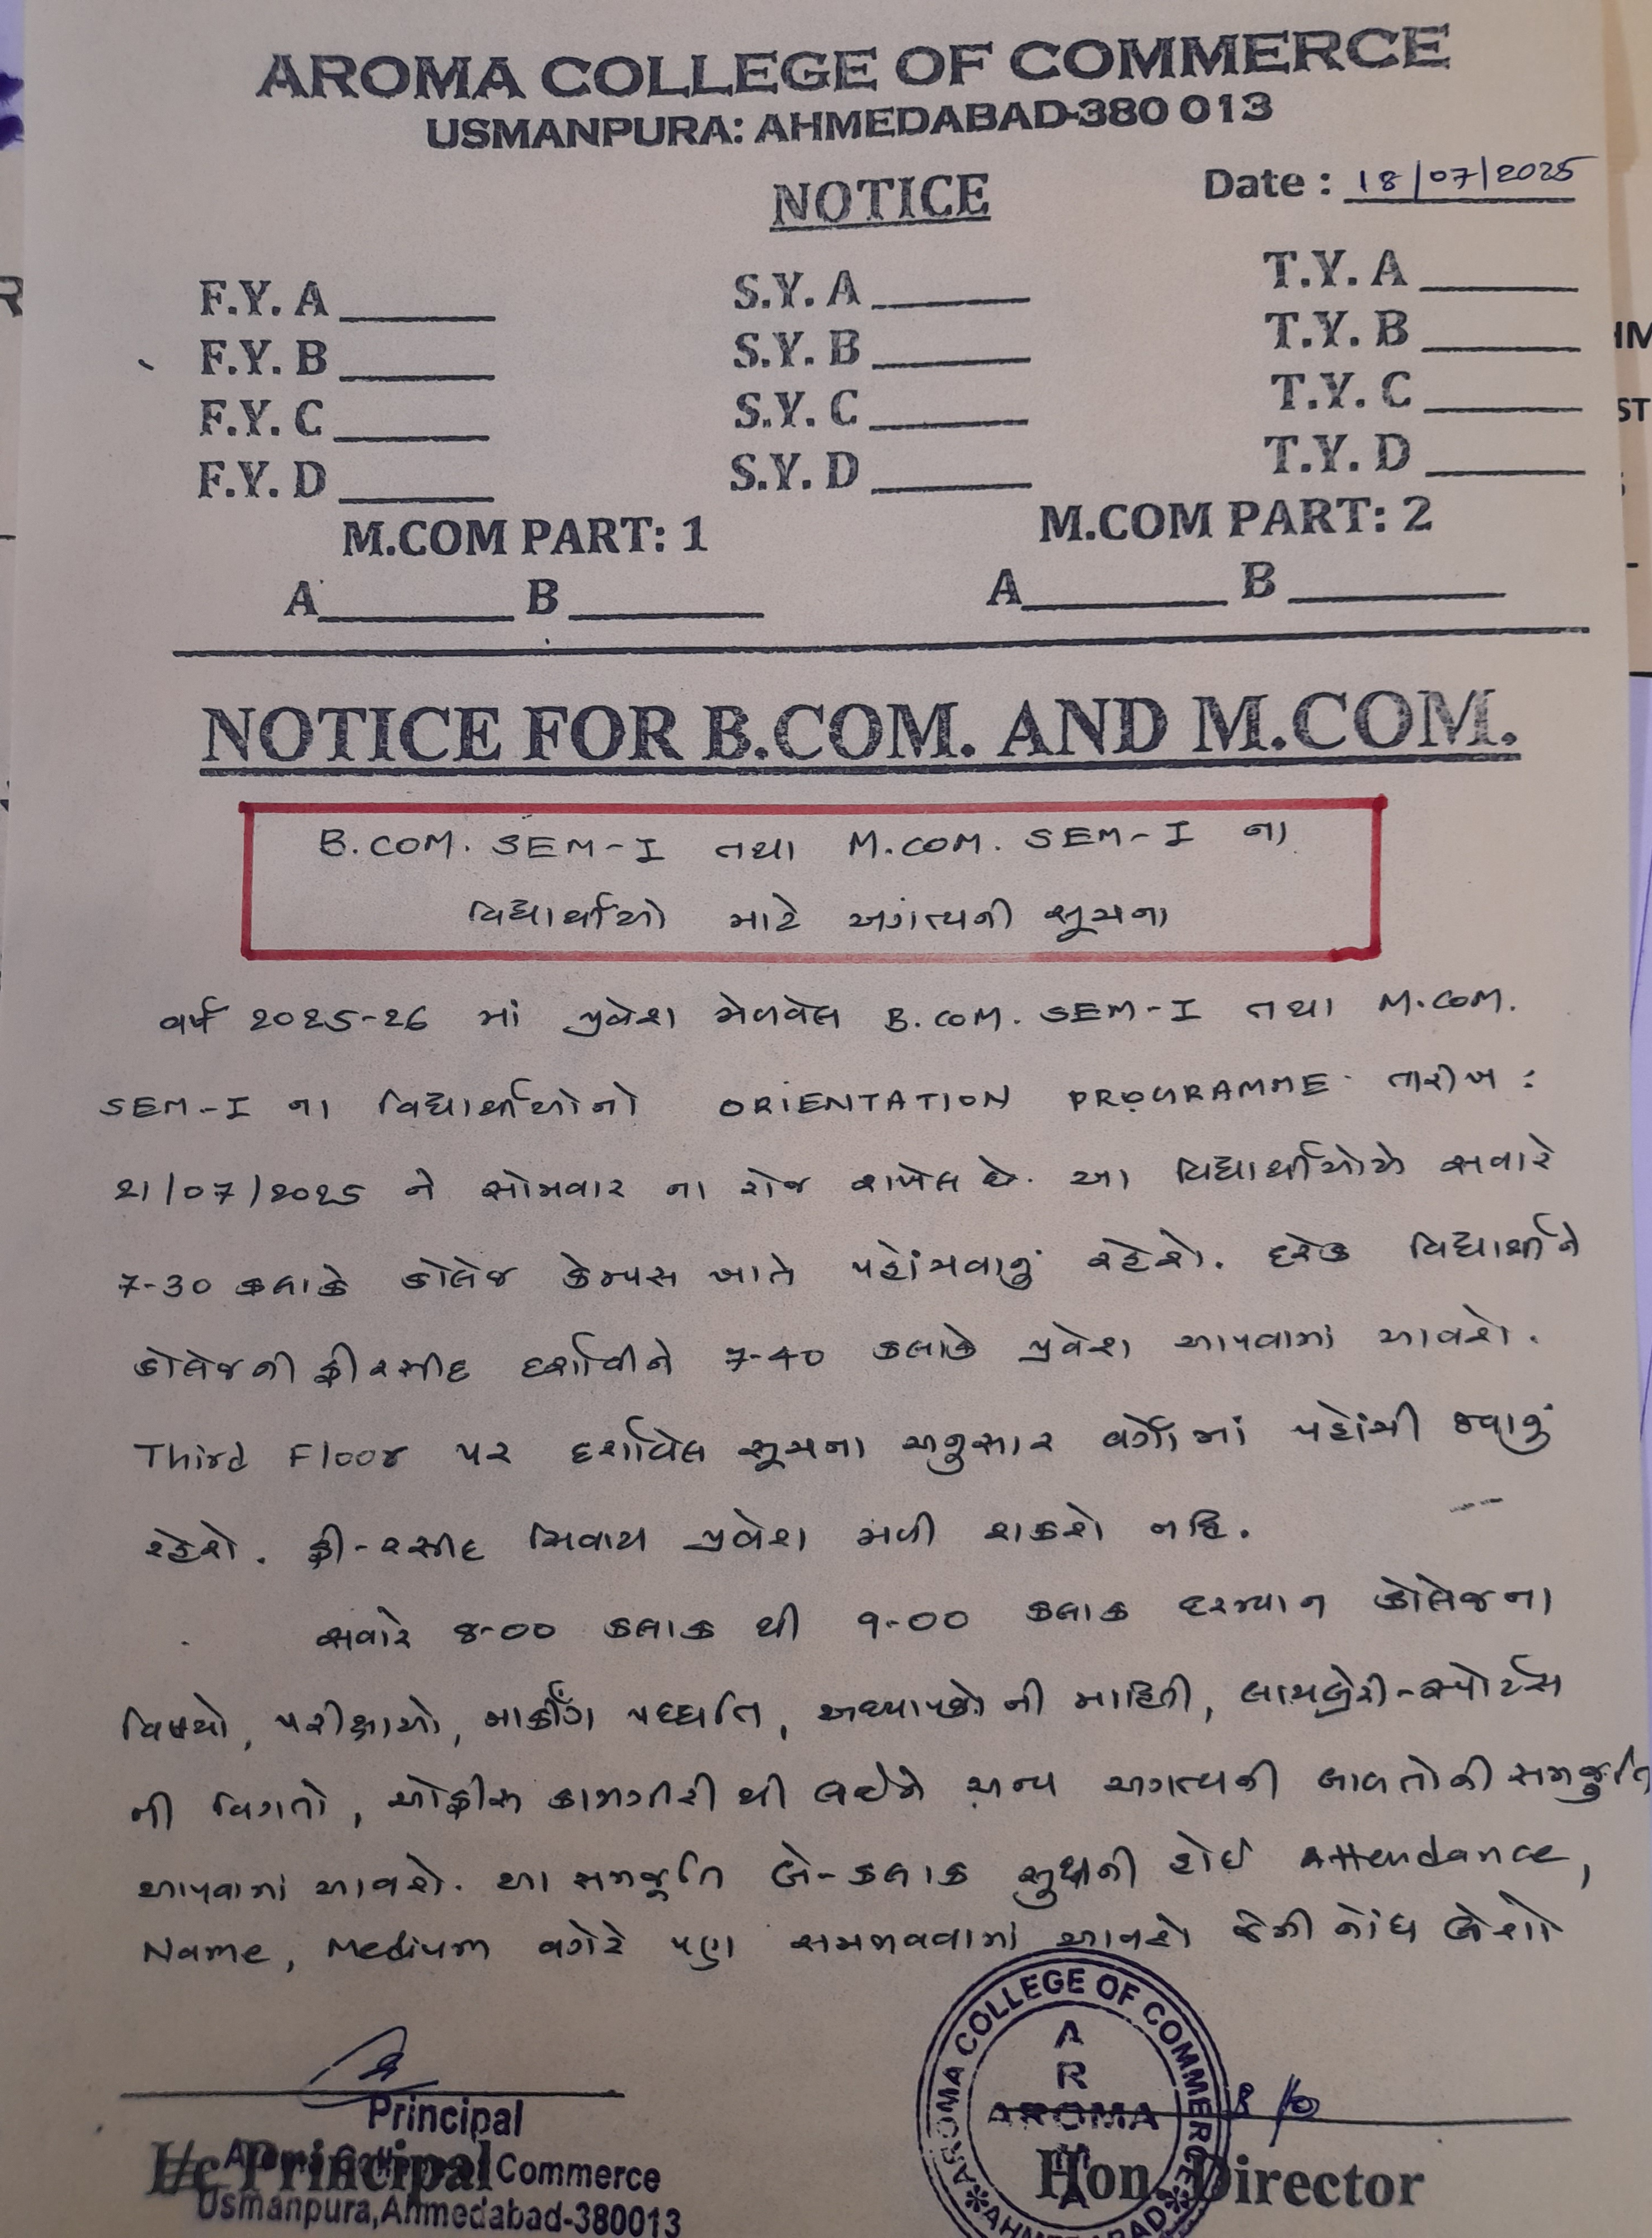 AROMA COLLEGE OF COMMERCE
USMANPURA: AHMEDABAD-380 013
NOTICE
Date : 18/07/2025
F.Y. A ______ S.Y. A ______ T.Y. A ______
F.Y. B ______ S.Y. B ______ T.Y. B ______
F.Y. C ______ S.Y. C ______ T.Y. C ______
F.Y. D ______ S.Y. D ______ T.Y. D ______
M.COM PART: 1 M.COM PART: 2
A______ B______ A______ B______
NOTICE FOR B.COM. AND M.COM.
B.COM. SEM-I તથા M.COM. SEM-I ના
વિદ્યાર્થીઓ માટે અગત્યની સૂચના
વર્ષ 2025-26 માં પ્રવેશ મેળવેલ B.COM. SEM-I તથા M.COM.
SEM-I ના વિદ્યાર્થીઓનો ORIENTATION PROGRAMME તારીખ :
21/07/2025 ને સોમવાર ના રોજ રાખેલ છે. આ વિદ્યાર્થીઓએ સવારે
7-30 કલાકે કોલેજ કેમ્પસ ખાતે પહોંચવાનું રહેશે. દરેક વિદ્યાર્થીને
કોલેજની ફી રસીદ દર્શાવીને 7-40 કલાકે પ્રવેશ આપવામાં આવશે.
Third Floor પર દર્શાવેલ સૂચના અનુસાર વર્ગોમાં પહોંચી જવાનું
રહેશે. ફી-રસીદ સિવાય પ્રવેશ મળી શકશે નહિ.
સવારે 8-00 કલાક થી 9-00 કલાક દરમ્યાન કોલેજના
વિષયો, પરીક્ષાઓ, માર્કીંગ પધ્ધતિ, અધ્યાપકો ની માહિતી, લાયબ્રેરી-સ્પોર્ટસ
ની વિગતો, ઓફીસ કામગીરી થી લઈને અન્ય અગત્યની બાબતોની સમજુતિ
આપવામાં આવશે. આ સમજૂતિ બે-કલાક સુધીની હોઈ Attendance,
Name, Medium વગેરે પણ સમજાવવામાં આવશે જેની નોંધ લેશો
Principal
Commerce
Usmanpura,Ahmedabad-380013
I/c Principal
AROMA COLLEGE OF COMMERCE
AROMA
Hon. Director